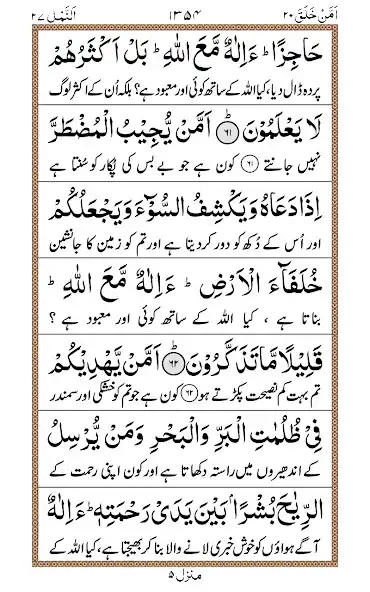 اَمَّنْ خَلَقَ ٢٠ ١٣٥٤ اَلنَّمْل ٢٧
حَاجِزًا ؕ ءَاِلٰهٌ مَّعَ اللّٰهِ ؕ بَلْ اَكْثَرُهُمْ
پردہ ڈال دیا، کیا اللہ کے ساتھ کوئی اور معبود ہے؟ بلکہ اُن کے اکثر لوگ
لَا يَعْلَمُوْنَ ؕ ﴿٦١﴾ اَمَّنْ يُّجِيْبُ الْمُضْطَرَّ
نہیں جانتے ﴿٦١﴾ کون ہے جو بے بس کی پُکار کو سُنتا ہے
اِذَا دَعَاهُ وَيَكْشِفُ السُّوْٓءَ وَيَجْعَلُكُمْ
اور اُس کے دُکھ کو دور کردیتا ہے اور تم کو زمین کا جانشین
خُلَفَآءَ الْاَرْضِ ؕ ءَاِلٰهٌ مَّعَ اللّٰهِ ؕ
بناتا ہے ، کیا اللہ کے ساتھ کوئی اور معبود ہے ؟
قَلِيْلًا مَّا تَذَكَّرُوْنَ ؕ ﴿٦٢﴾ اَمَّنْ يَّهْدِيْكُمْ
تم بہت کم نصیحت پکڑتے ہو ﴿٦٢﴾ کون ہے جو تم کو خشکی اور سمندر
فِيْ ظُلُمٰتِ الْبَرِّ وَالْبَحْرِ وَمَنْ يُّرْسِلُ
کے اندھیروں میں راستہ دکھاتا ہے اور کون اپنی رحمت کے
الرِّيٰحَ بُشْرًۢا بَيْنَ يَدَيْ رَحْمَتِهٖ ؕ ءَاِلٰهٌ
آگے ہواؤں کو خوش خبری لانے والا بنا کر بھیجتا ہے، کیا اللہ کے
منزل ٥